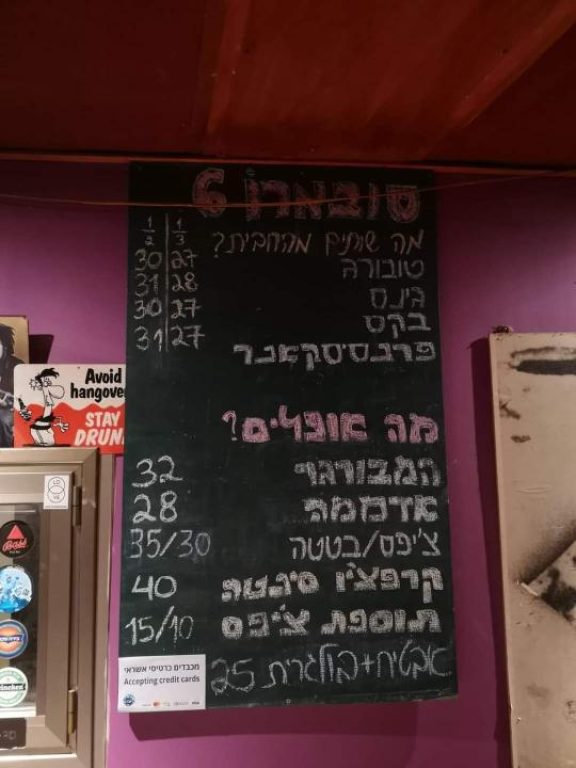 סובארו 6
1/2 | 1/3
מה שותים מהחבית?
טובורג 27 30
גינס 28 31
בקס 27 30
פרנסיסקאנר 27 31
מה אוכלים?
המבורגר 32
אדממה 28
צ׳יפס/בטטה 35/30
קרפצ׳ו סינטה 40
תוספת צ׳יפס 15/10
אבטיח+בולגרית 25
מכבדים כרטיסי אשראי
Accepting credit cards
Avoid
hangover
STAY
DRUN
Heineken